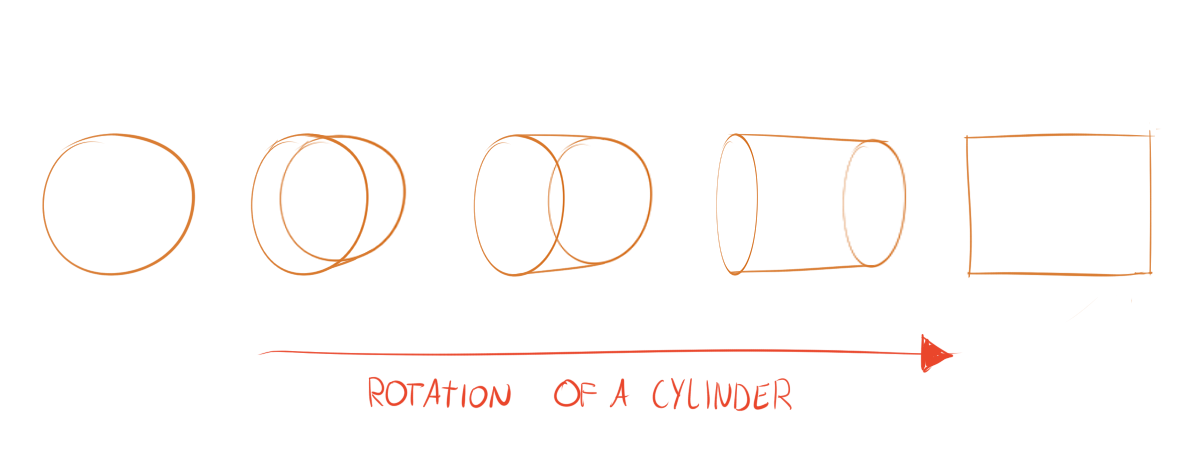 ROTATION OF A CYLINDER